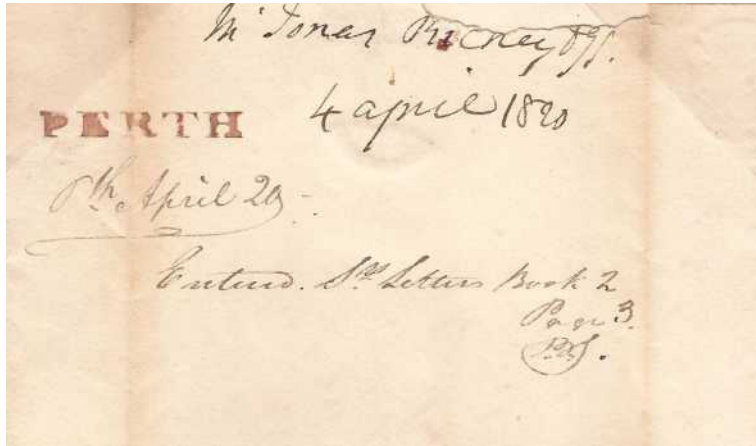 Mr Jonas
4 april 1820
PERTH
6th April 20
Enterd. Letters Book 2
Page 3.